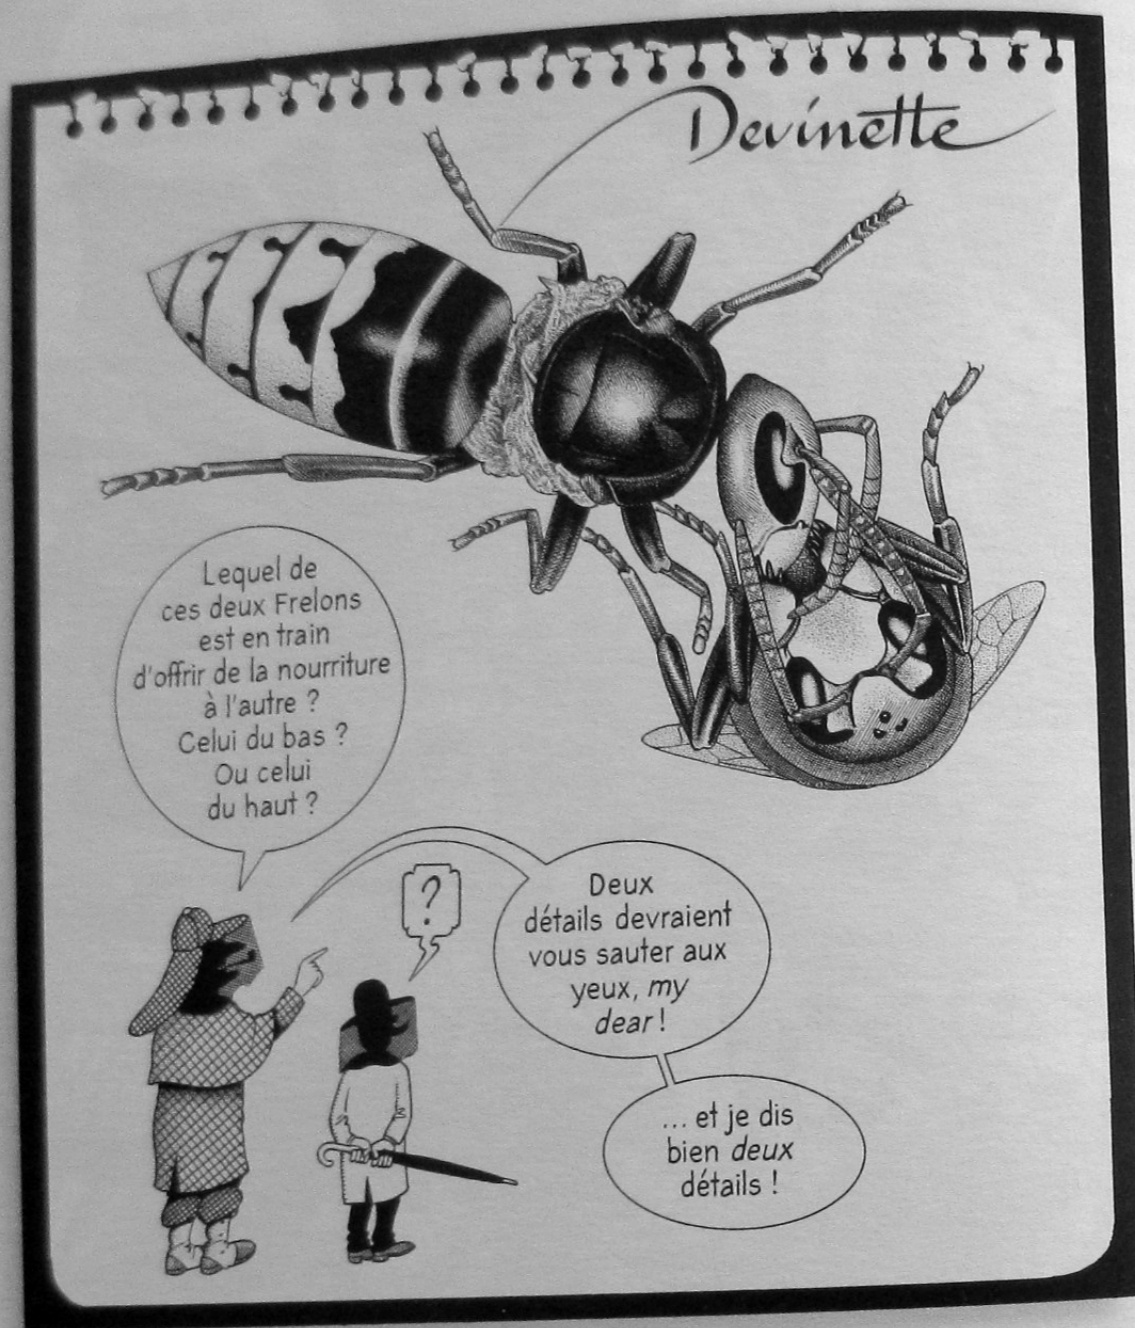 Devinette
Lequel de
ces deux Frelons
est en train
d'offrir de la nourriture
à l'autre ?
Celui du bas ?
Ou celui
du haut ?
?
Deux
détails devraient
vous sauter aux
yeux, my
dear !
... et je dis
bien deux
détails !